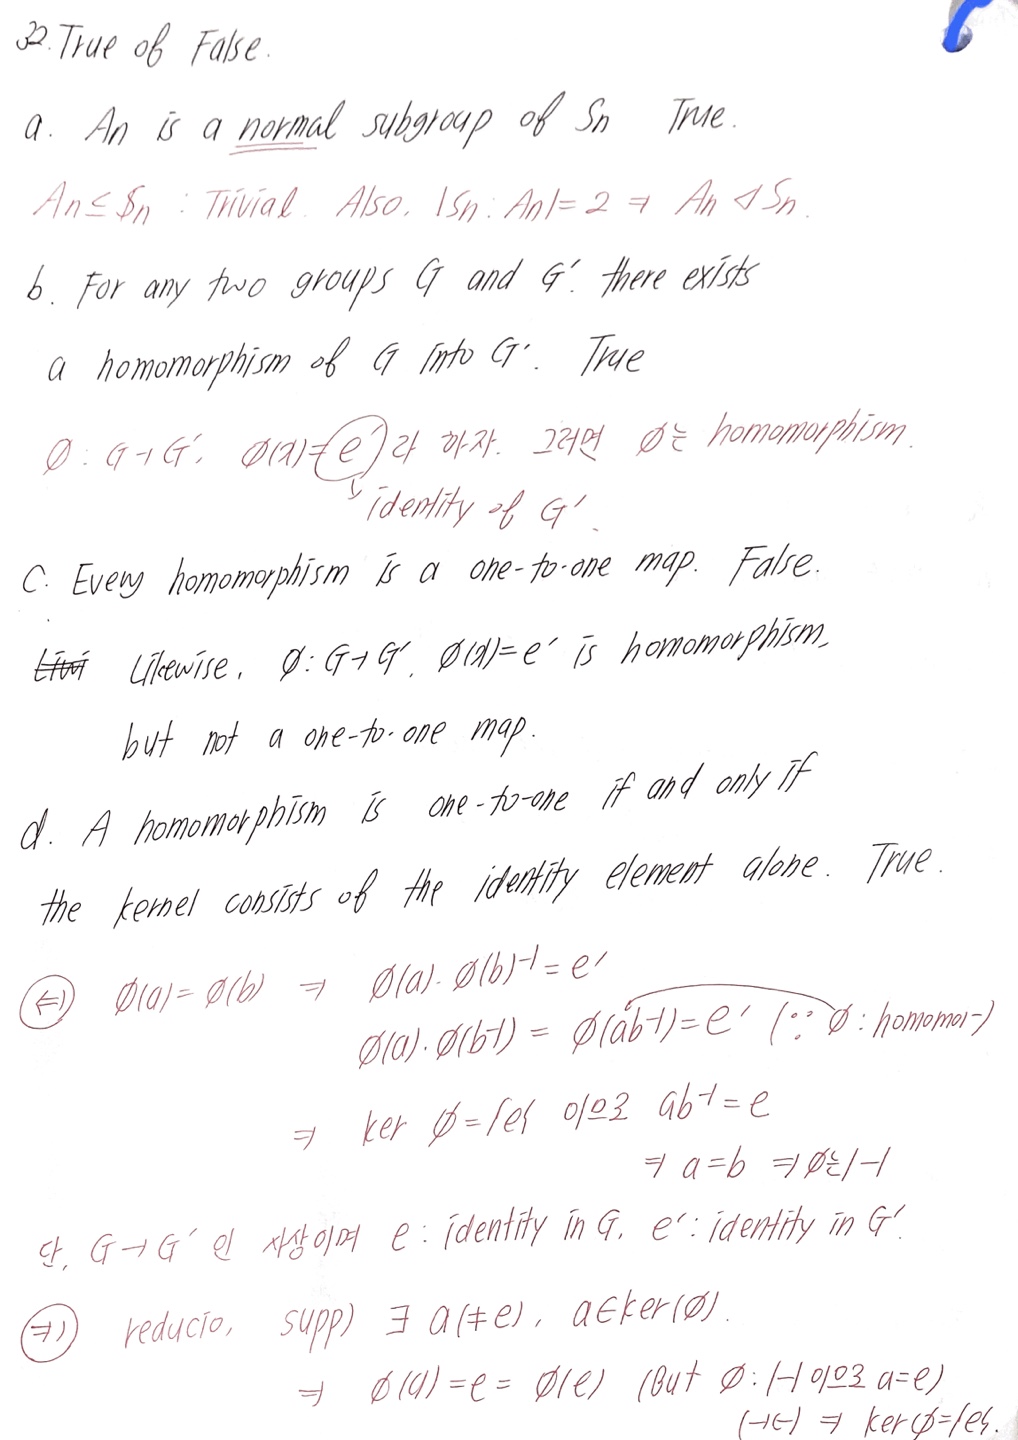 32. True of False.
a. An is a normal subgroup of Sn True.
An ≤ Sn : Trivial. Also, |Sn : An| = 2 ⇒ An ⊲ Sn.
b. For any two groups G and G′. there exists
a homomorphism of G into G′. True
Ø : G → G′, Ø(x) = e′ 라 하자. 그러면 Ø는 homomorphism.
↓ identity of G′.
C. Every homomorphism is a one-to-one map. False.
Likewise, Ø : G → G′, Ø(x) = e′ is homomorphism,
but not a one-to-one map.
d. A homomorphism is one-to-one if and only if
the kernel consists of the identity element alone. True.
(⇐) Ø(a) = Ø(b) ⇒ Ø(a)·Ø(b)⁻¹ = e′
Ø(a)·Ø(b⁻¹) = Ø(ab⁻¹) = e′ (∵ Ø : homomor-)
⇒ ker Ø = {e} 이므로 ab⁻¹ = e
⇒ a = b ⇒ Ø는 1-1
단, G → G′ 인 사상이며 e : identity in G, e′ : identity in G′.
(⇒) reducio, supp) ∃ a(≠e), a ∈ ker(Ø).
⇒ Ø(a) = e = Ø(e) (But Ø : 1-1 이므로 a = e)
(→←) ⇒ ker Ø = {e}.